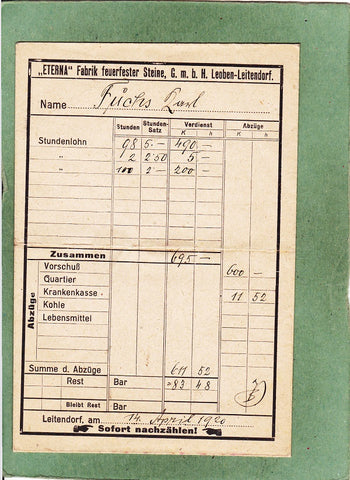 „ETERNA“ Fabrik feuerfester Steine, G. m. b. H. Leoben-Leitendorf.
Name Fuchs Karl
Stunden Stunden-Satz Verdienst Abzüge
K h K h
Stundenlohn 98 5.– 490 –
„ 2 2 50 5 –
„ 100 2 – 200 –
Zusammen 695 –
Abzüge
Vorschuß 600 –
Quartier
Krankenkasse 11 52
Kohle
Lebensmittel
Summe d. Abzüge 611 52
Rest Bar 83 48
Bleibt Rest Bar
Leitendorf, am 14. April 1920
Sofort nachzählen!